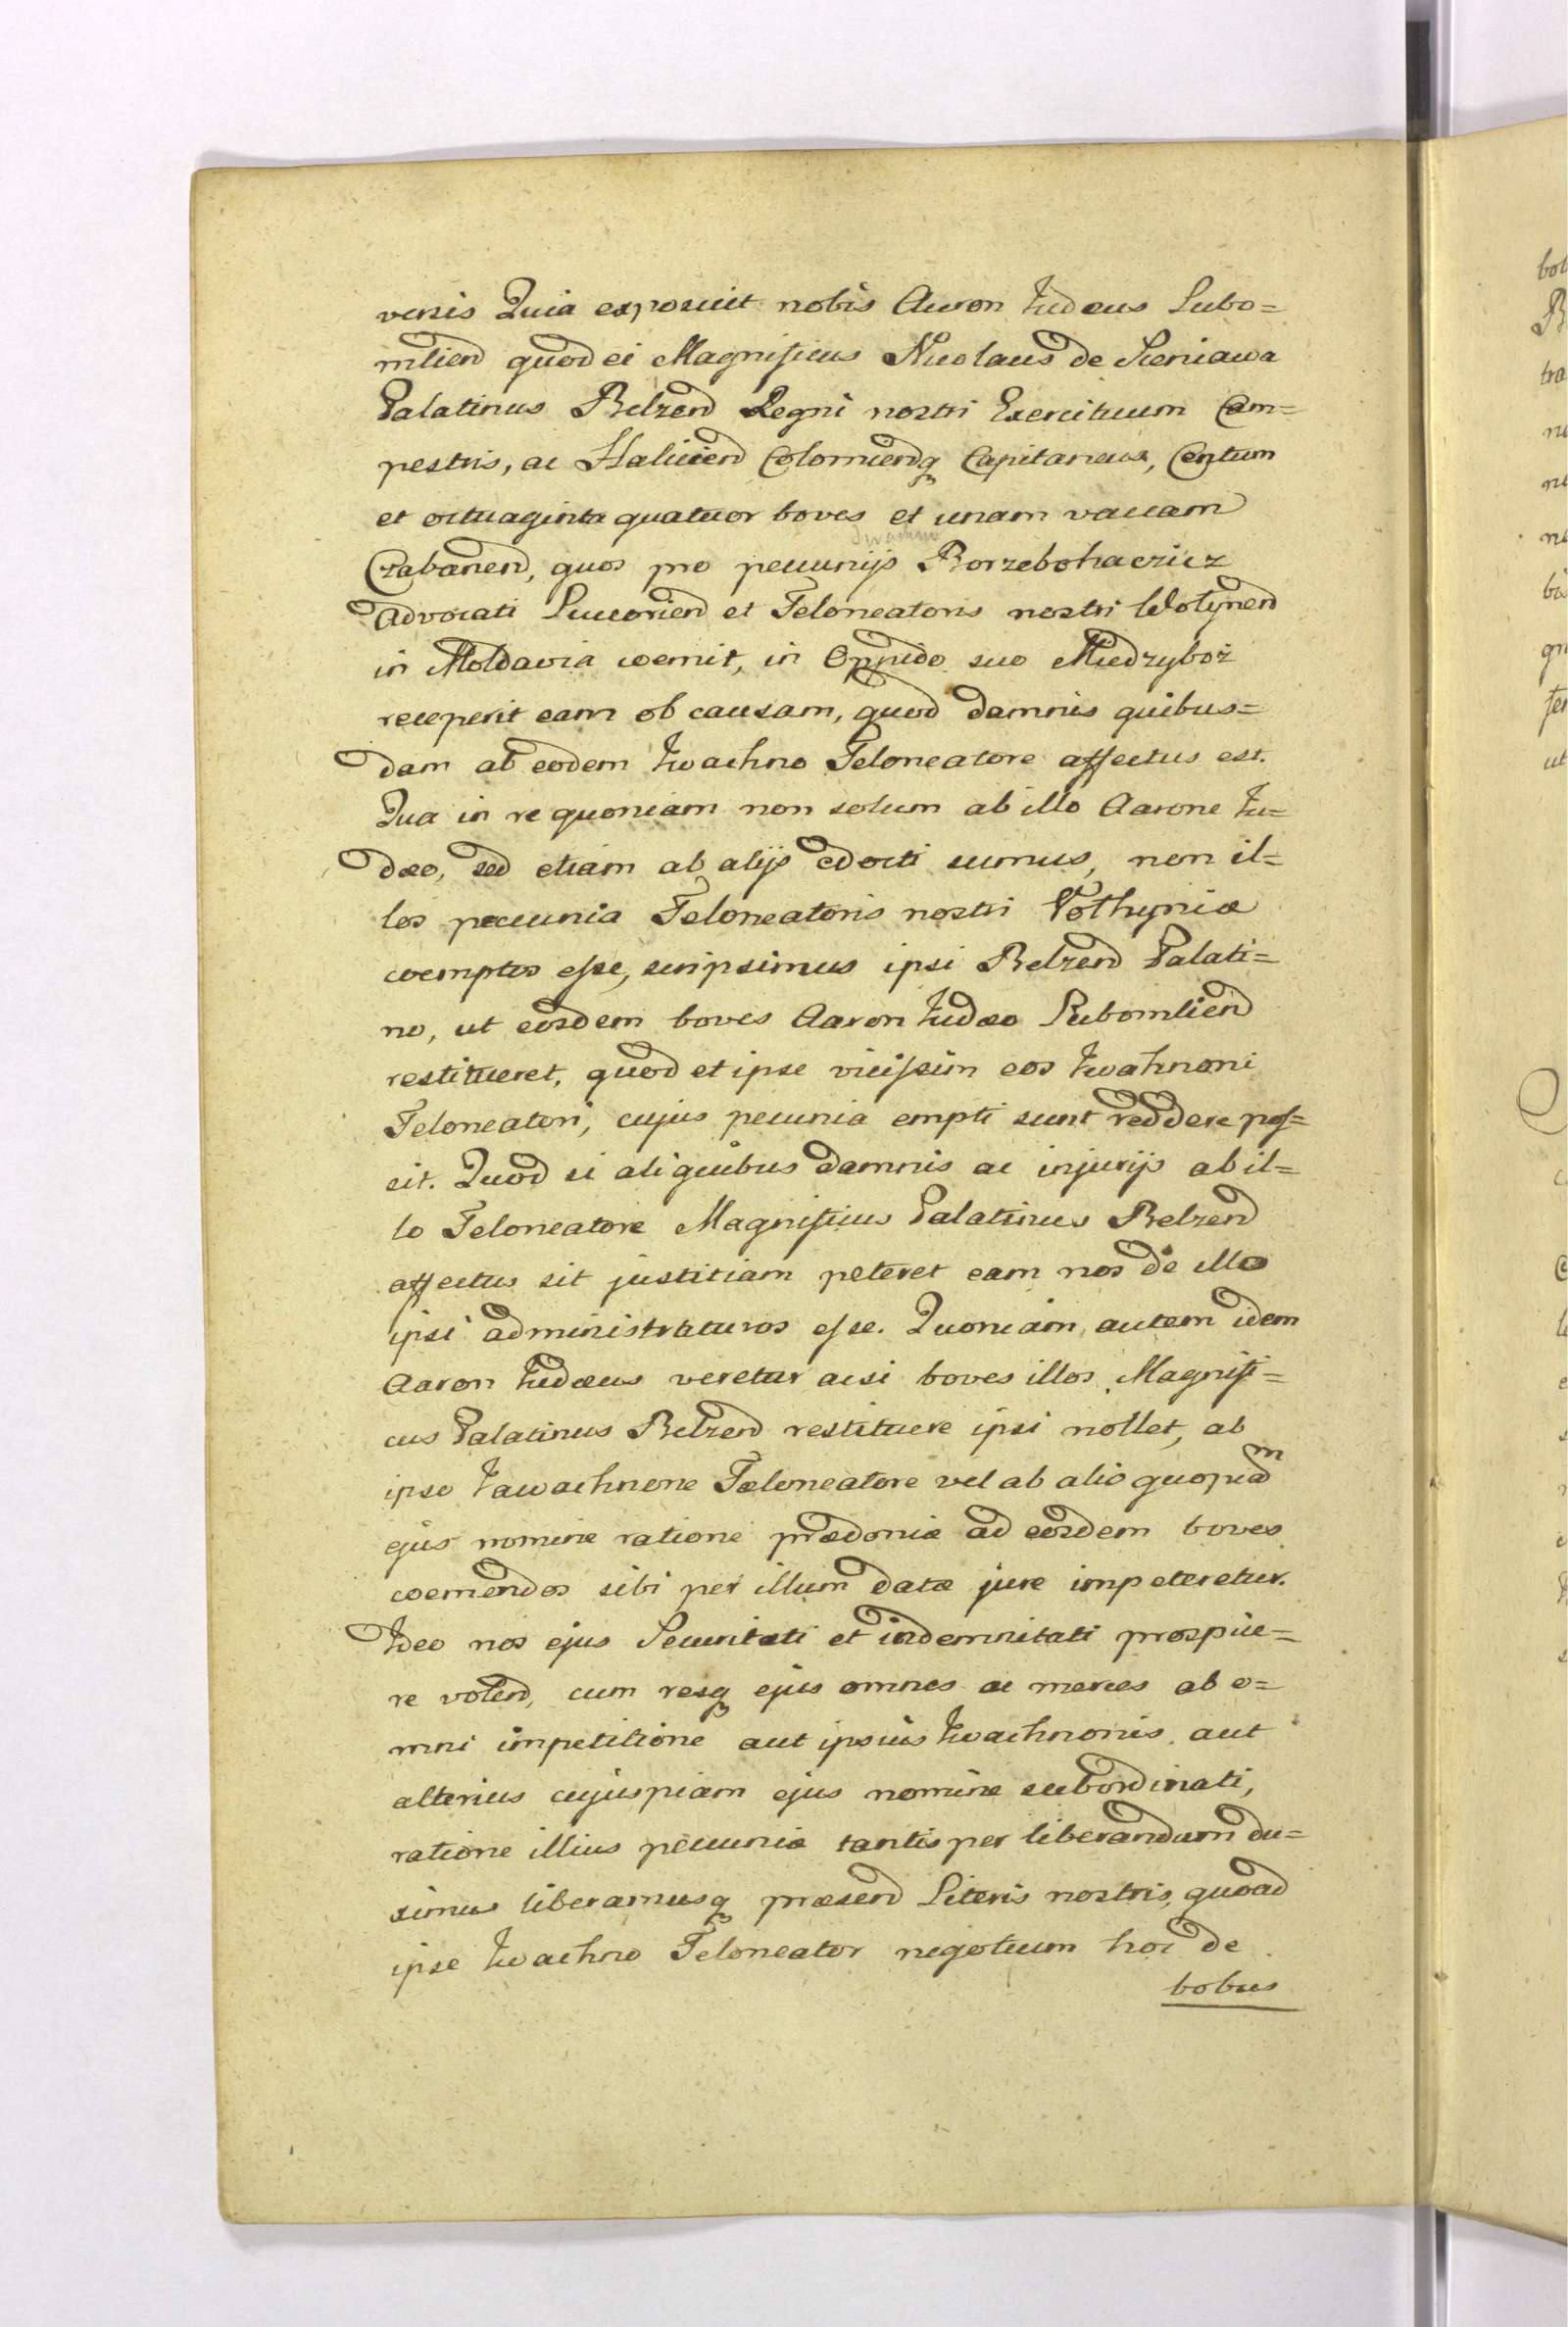 versis Quia exposuit nobis Auron Judeus Lubo=
mliend quod ei Magnificus Nicolaus de Sieniawa
Palatinus Belzend Regni nostri Exercituum Cam=
pestris, ac Haliciend Colomiendq Capitaneus, Centum
et octuaginta quatuor boves et unam vaccam
Czabanend, quos pro pecunijs Borzebohaczicz
Advocati Luceoriend et Teloneatoris nostri Wolynend
in Moldavia coemit, in Oppido suo Miedzyboż
receperit eam ob causam, quod damnis quibus=
dam ab eodem Iwachno Teloneatore affectus est.
Qua in re quoniam non solum ab illo Aarone Ju=
dæo, sed etiam ab alijs edocti sumus, non il=
los pecunia Teloneatoris nostri Volhyniæ
coemptos esse, scripsimus ipsi Belzend Palati=
no, ut eosdem boves Aaron Judæo Lubomliend
restitueret, quod et ipse vicissim eos Iwahnoni
Teloneatori, cujus pecunia empti sunt reddere pos=
sit. Quod si aliquibus damnis ac injurijs ab il=
lo Teloneatore Magnificus Palatinus Belzend
affectus sit justitiam peteret eam nos de illo
ipsi administraturos esse. Quoniam autem idem
Aaron Judæus veretur acsi boves illos Magnifi=
cus Palatinus Belzend restituere ipsi nollet, ab
ipso Jawachnone Tæloneatore vel ab alio quopiam
ejus nomine ratione prædoniæ ad eosdem boves
coemendos sibi per illum datæ jure impeteretur.
Ideo nos ejus Securitati et indemnitati prospice=
re volend, eum resq ejus omnes ac merces ab o=
mni impetitione aut ipsius Iwachnonis aut
alterius cujuspiam ejus nomine subordinati,
ratione illius pecuniæ tantisper liberandum du=
ximus liberamusq præsend Literis nostris, quoad
ipse Iwachno Teloneator negotium hoc de
bobus